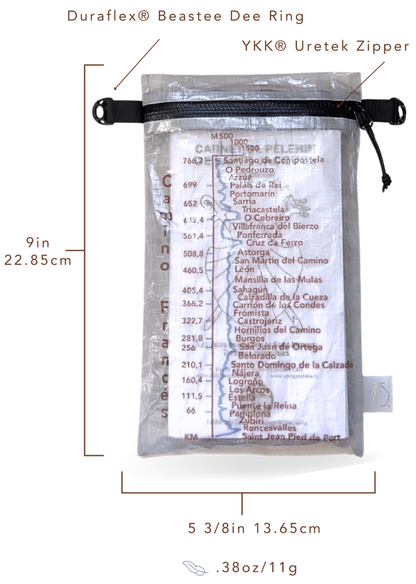 Duraflex® Beastee Dee Ring
YKK® Uretek Zipper
M500
1000
500
CARNET PELERIN
766,2 Santiago de Compostela
O Pedrouzo
Arzúa
699 Palais de Rei
Portomarín
652 Sarria
Triacastela
618,4 O Cebreiro
Villafranca del Bierzo
561,4 Ponferrada
Cruz de Ferro
508,8 Astorga
San Martín del Camino
460,5 León
Mansilla de las Mulas
405,4 Sahagún
Calzadilla de la Cueza
366,2 Carrión de los Condes
Fromista
322,7 Castrojeriz
Hornillos del Camino
281,8 Burgos
256 San Juan de Ortega
Belorado
210,1 Santo Domingo de la Calzada
Nájera
160,4 Logroño
Los Arcos
111,5 Estella
Puente la Reina
66 Pamplona
Zubiri
Roncesvalles
KM Saint Jean Pied de Port
Camino Francés
9in
22.85cm
5 3/8in 13.65cm
.38oz/11g